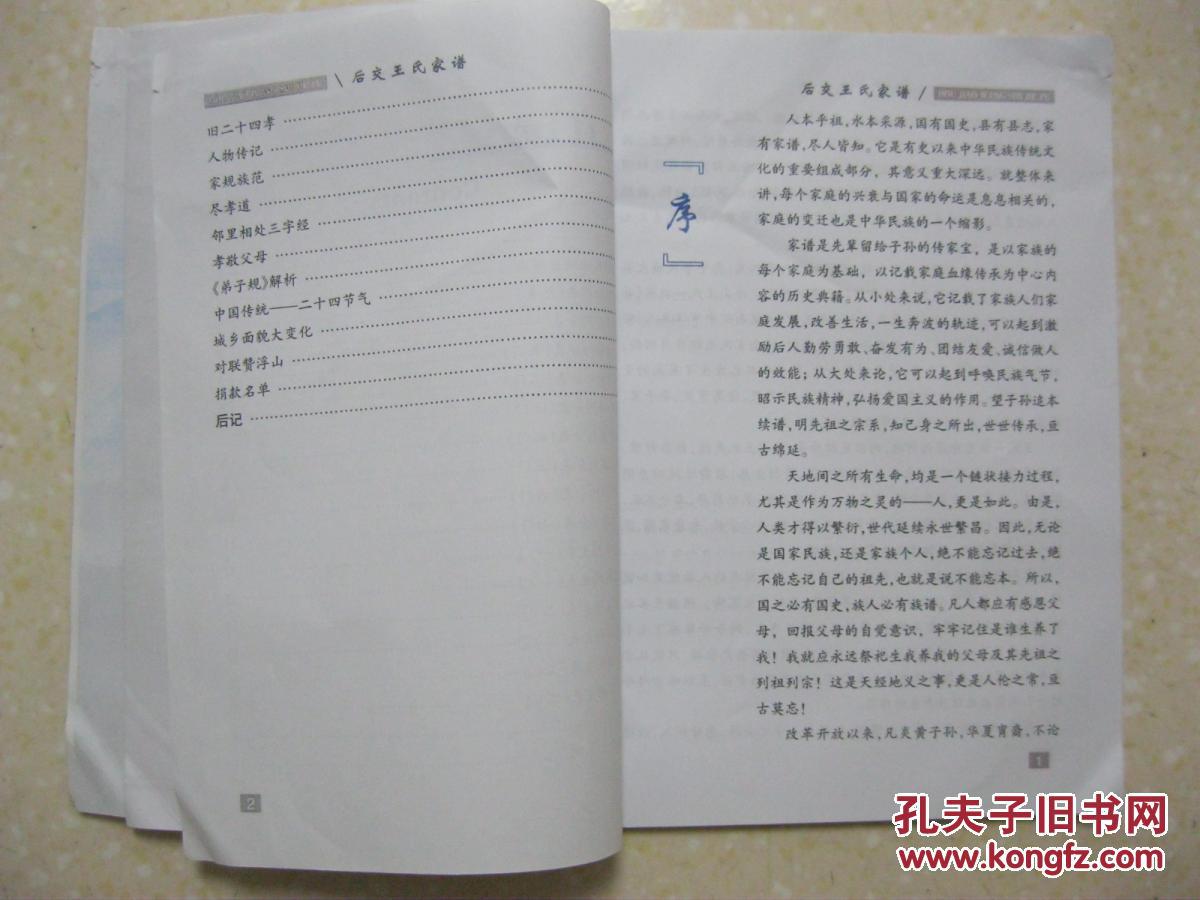 后交王氏家谱
旧二十四孝
人物传记
家规族范
尽孝道
邻里相处三字经
孝敬父母
《弟子规》解析
中国传统——二十四节气
城乡面貌大变化
对联赞浮山
捐款名单
后记
2
后交王氏家谱
『序』
人本乎祖,水本采源,国有国史,县有县志,家
有家谱,尽人皆知。它是有史以来中华民族传统文
化的重要组成部分，其意义重大深远。就整体来
讲,每个家庭的兴衰与国家的命运是息息相关的,
家庭的变迁也是中华民族的一个缩影。
家谱是先辈留给子孙的传家宝，是以家族的
每个家庭为基础，以记载家庭血缘传承为中心内
容的历史典籍。从小处来说,它记载了家族人们家
庭发展,改善生活,一生奔波的轨迹,可以起到激
励后人勤劳勇敢、奋发有为、团结友爱、诚信做人
的效能；从大处来论,它可以起到呼唤民族气节,
昭示民族精神,弘扬爱国主义的作用。望子孙追本
续谱,明先祖之宗系,知己身之所出,世世传承,亘
古绵延。
天地间之所有生命,均是一个链状接力过程,
尤其是作为万物之灵的——人,更是如此。由是,
人类才得以繁衍,世代延续永世繁昌。因此,无论
是国家民族,还是家族个人,绝不能忘记过去,绝
不能忘记自己的祖先,也就是说不能忘本。所以,
国之必有国史,族人必有族谱。凡人都应有感恩父
母，回报父母的自觉意识，牢牢记住是谁生养了
我！我就应永远祭祀生我养我的父母及其先祖之
列祖列宗！这是天经地义之事,更是人伦之常,亘
古莫忘！
改革开放以来,凡炎黄子孙,华夏胄裔,不论
1
孔夫子旧书网
www.kongfz.com